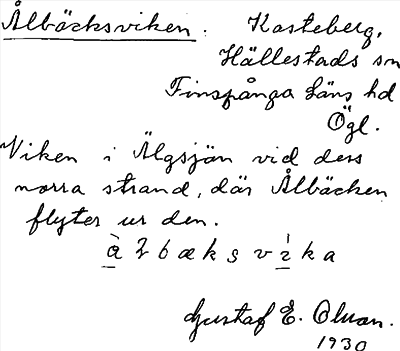 Ålbäcksviken. Kasteberg,
Hällestads sn
Finspånga läns hd
Ögl.
Viken i Älgsjön vid dess
norra strand, där Ålbäcken
flyter ur den.
Gustaf E. Olson.
1930